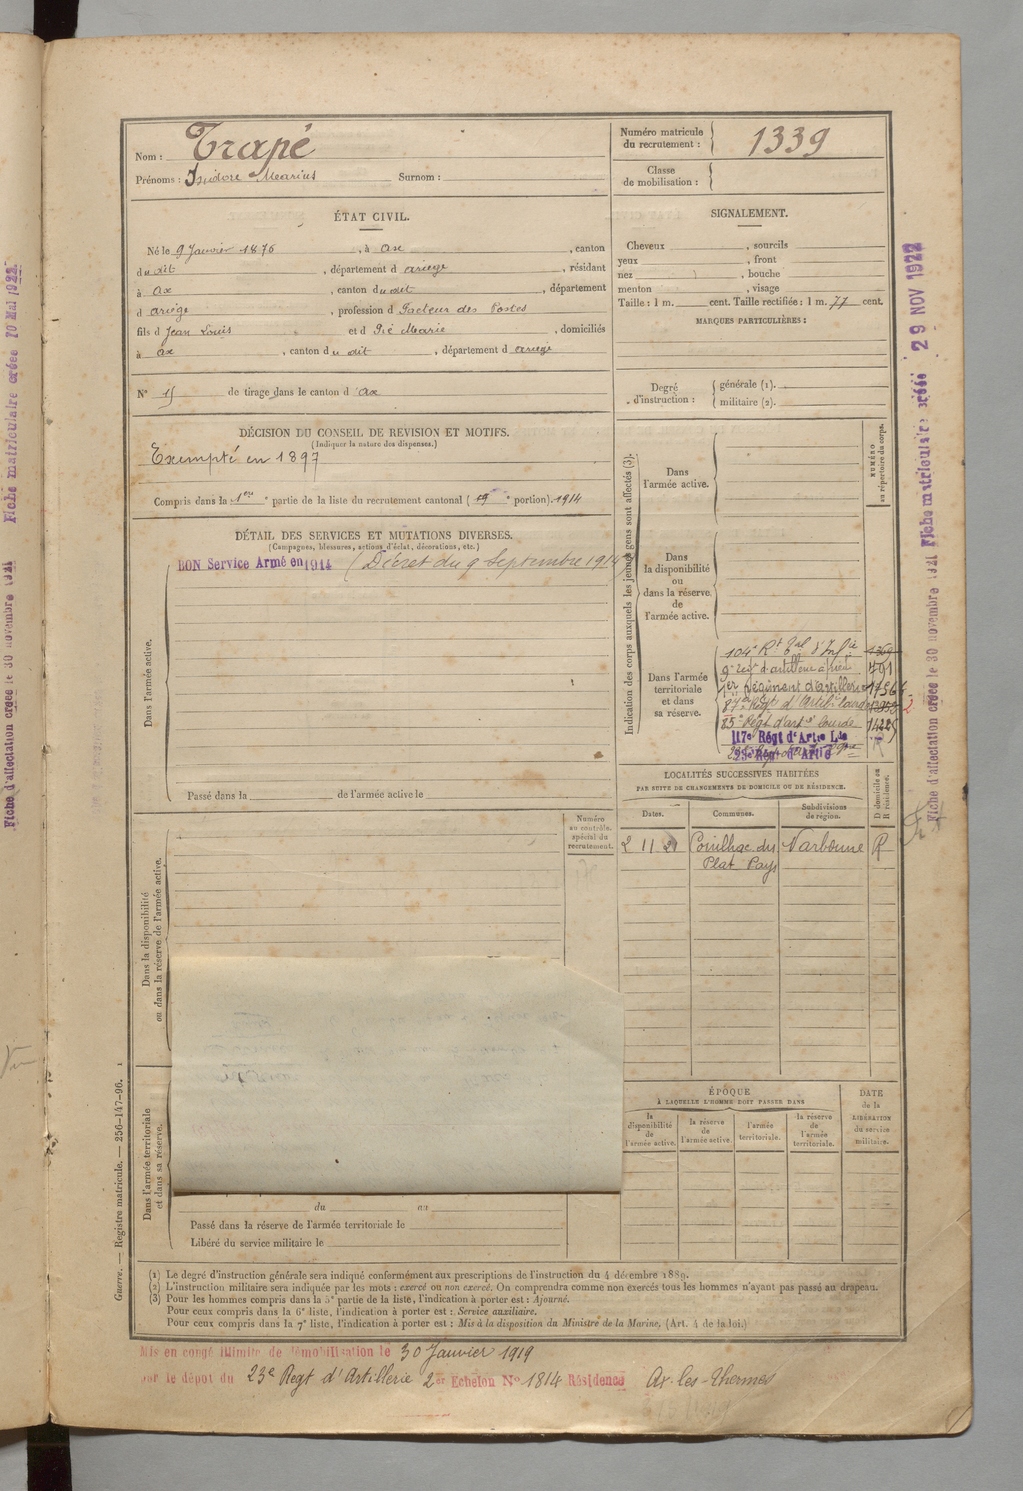 Nom : Trapé
Prénoms : Isidore Marius Surnom :
Numéro matricule du recrutement : 1339
Classe de mobilisation :
ÉTAT CIVIL.
Né le 9 Janvier 1876, à Ax, canton
du dit, département d ariège, résidant
à Ax, canton du dit, département
d ariège, profession d Facteur des Postes
fils d Jean Louis et d Pré Marie, domiciliés
à Ax, canton du dit, département d ariège
N° 15 de tirage dans le canton d Ax
SIGNALEMENT.
Cheveux , sourcils
yeux , front
nez , bouche
menton , visage
Taille : 1 m. cent. Taille rectifiée : 1 m. 77 cent.
MARQUES PARTICULIÈRES :
Degré d'instruction : générale (1).
militaire (2).
DÉCISION DU CONSEIL DE REVISION ET MOTIFS.
(Indiquer la nature des dispenses.)
Exempté en 1897
Compris dans la 1ere partie de la liste du recrutement cantonal ( 19 e portion). 1914
DÉTAIL DES SERVICES ET MUTATIONS DIVERSES.
(Campagnes, blessures, actions d'éclat, décorations, etc.)
BON Service Armé en 1914 (Décret du 9 Septembre 1914)
Dans l'armée active.
Passé dans la de l'armée active le
Dans la disponibilité ou dans la réserve de l'armée active.
Numéro au contrôle spécial du recrutement.
Dans l'armée territoriale et dans sa réserve.
du au
Passé dans la réserve de l'armée territoriale le
Libéré du service militaire le
Indication des corps auxquels les jeunes gens sont affectés (3).
NUMÉRO au répertoire du corps.
Dans l'armée active.
Dans la disponibilité ou dans la réserve de l'armée active.
Dans l'armée territoriale et dans sa réserve.
104e Rt Tal d'Infie 1369
9e regt d'artillerie à pied 491
1er régiment d'artillerie 17564
87e Regt d'Artil. lourde
85e Régt d'arte lourde 14225
117e Régt d'Artie Lde
23e Régt d'Artie
LOCALITÉS SUCCESSIVES HABITÉES
PAR SUITE DE CHANGEMENTS DE DOMICILE OU DE RÉSIDENCE.
Dates. Communes. Subdivisions de région. D domicile ou R résidence.
2 11 21 Pouilhac du Plat Pays Narbonne R
ÉPOQUE
À LAQUELLE L'HOMME DOIT PASSER DANS
la disponibilité de l'armée active. la réserve de l'armée active. l'armée territoriale. la réserve de l'armée territoriale.
DATE de la LIBÉRATION du service militaire.
(1) Le degré d'instruction générale sera indiqué conformément aux prescriptions de l'instruction du 4 décembre 1889.
(2) L'instruction militaire sera indiquée par les mots : exercé ou non exercé. On comprendra comme non exercés tous les hommes n'ayant pas passé au drapeau.
(3) Pour les hommes compris dans la 5e partie de la liste, l'indication à porter est : Ajourné.
Pour ceux compris dans la 6e liste, l'indication à porter est : Service auxiliaire.
Pour ceux compris dans la 7e liste, l'indication à porter est : Mis à la disposition du Ministre de la Marine, (Art. 4 de la loi.)
Mis en congé illimité de démobilisation le 30 Janvier 1919
par le dépôt du 23e Regt d'Artillerie 2er Echelon N° 1814 Résidence Ax-les-Thermes
Guerre. — Registre matricule. — 256-147-96.
Fiche d'affectation créée le 30 novembre 1921 Fiche matriculaire créée 29 NOV 1922
Fiche d'affectation créée le 30 novembre 1921 Fiche matriculaire créée 20 Mai 1922